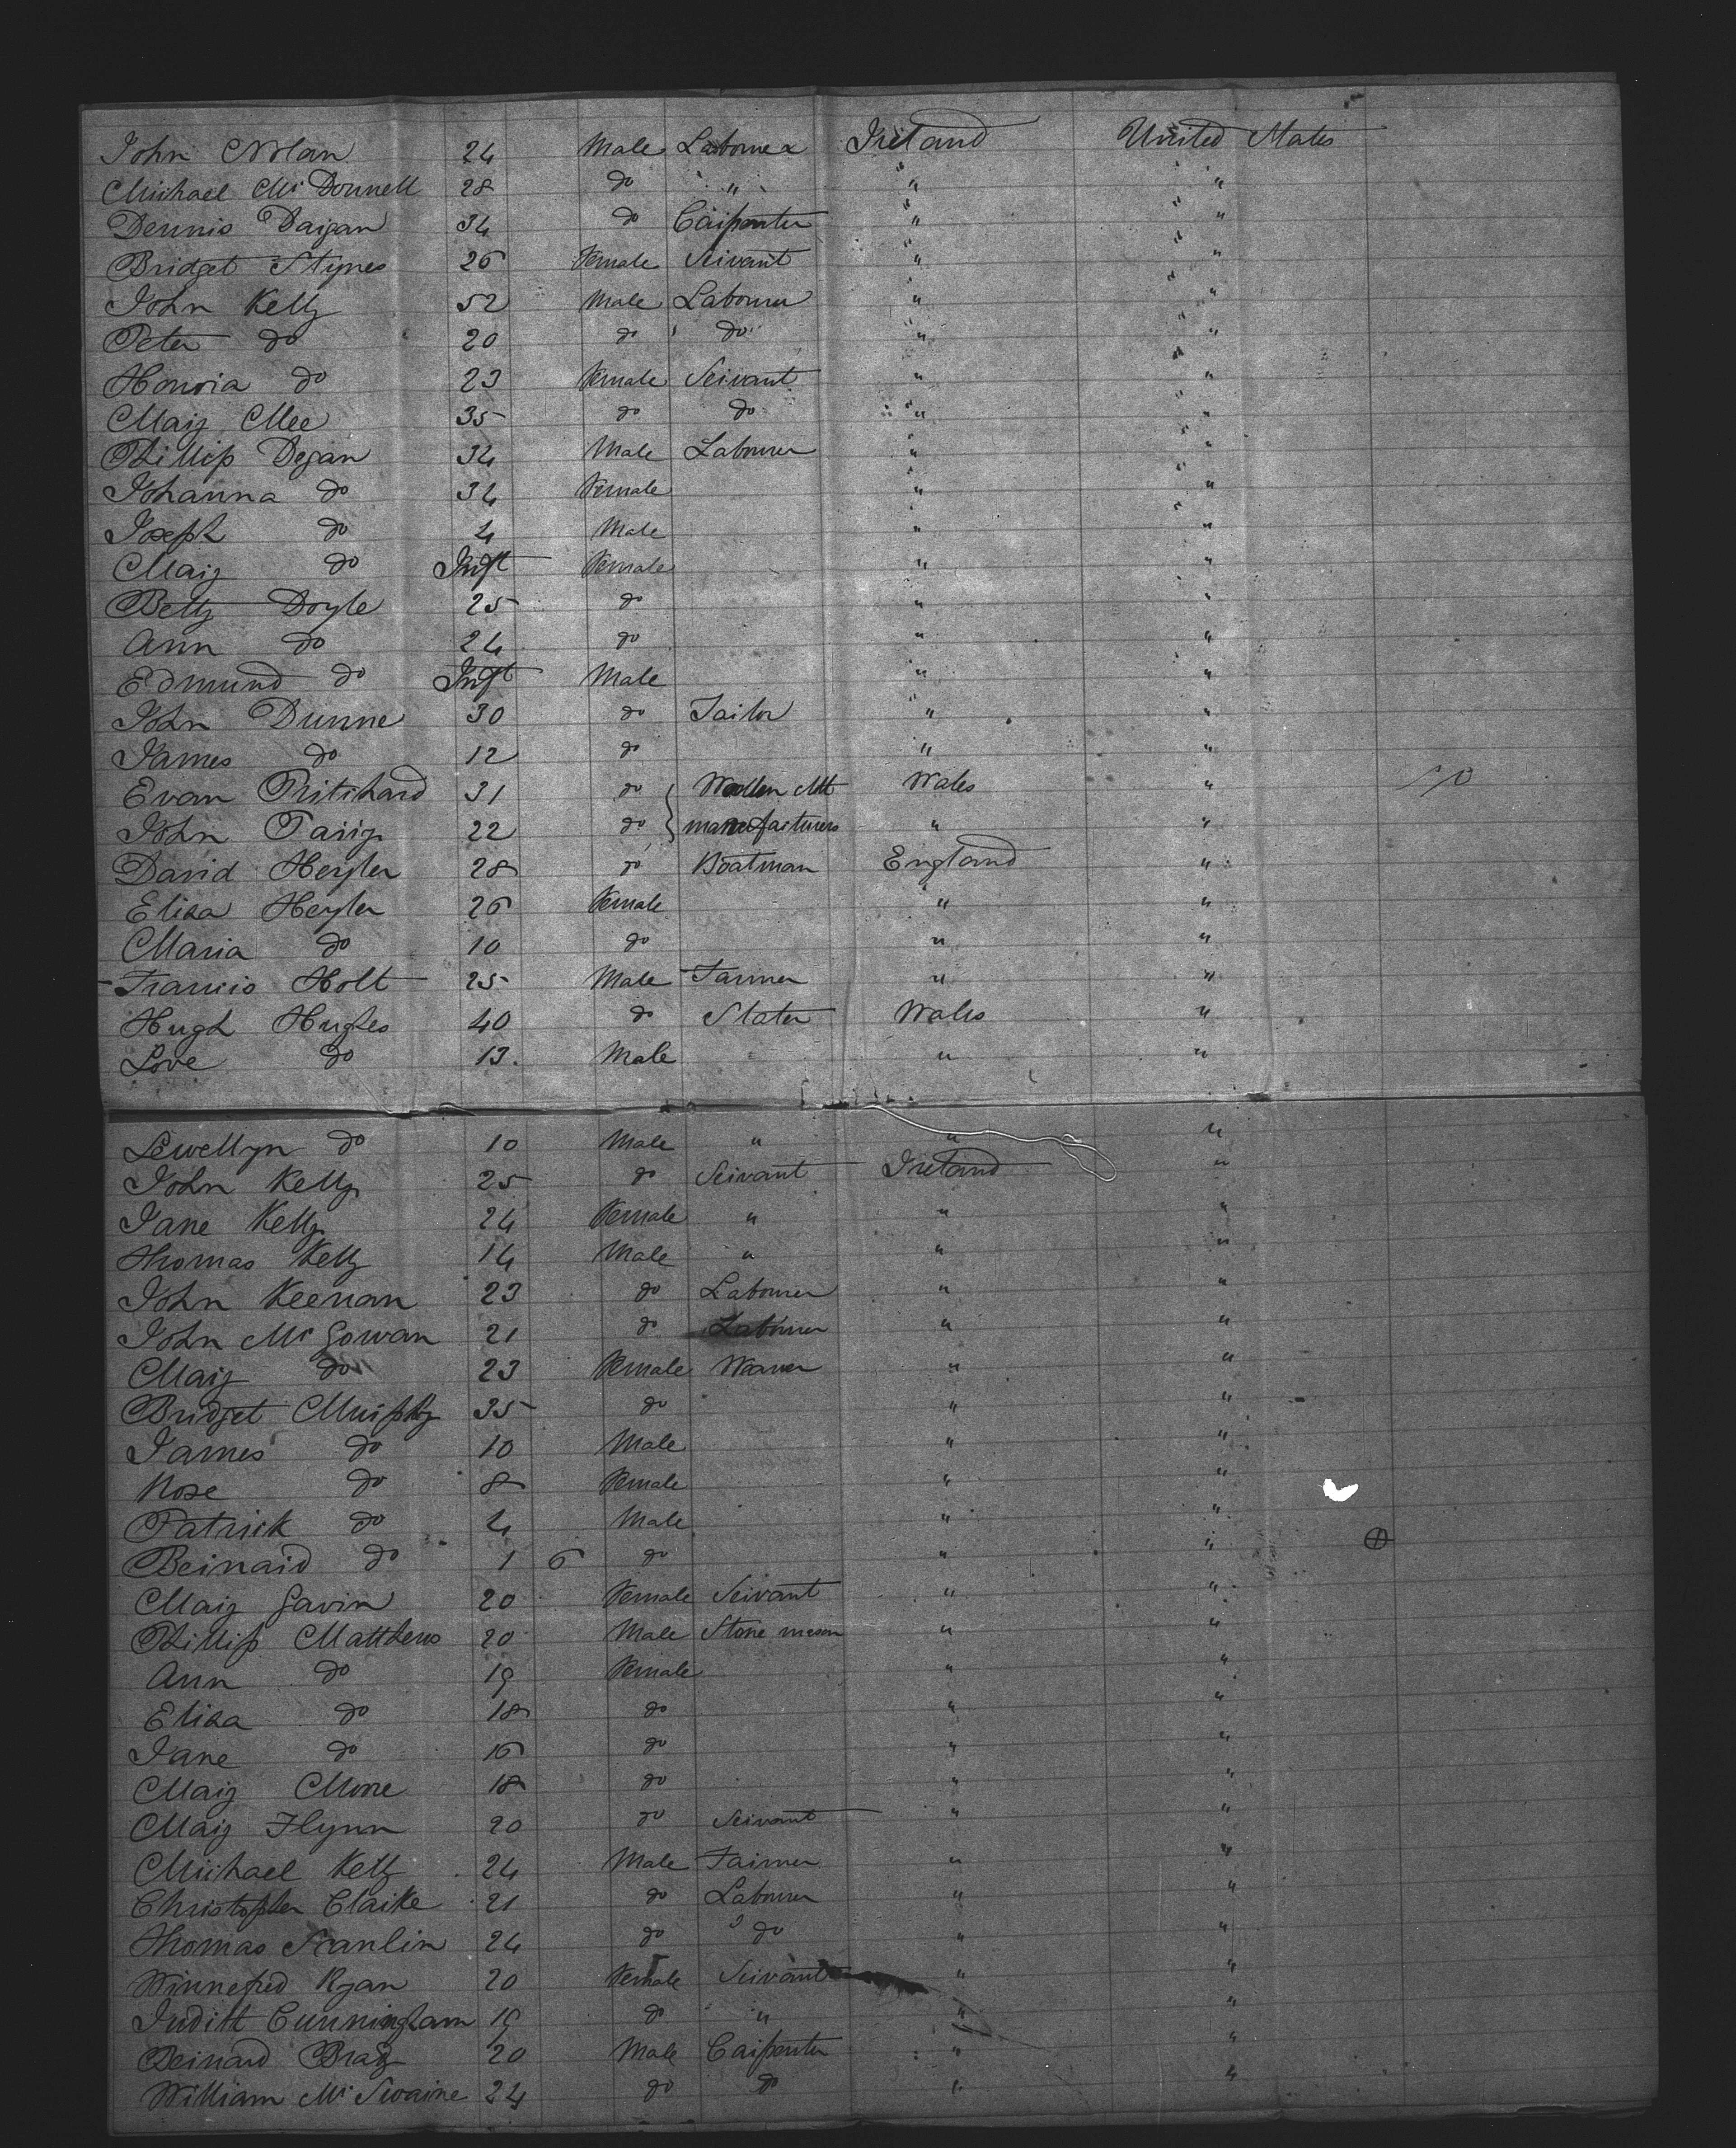 John Nolan 24 Male Labourer Ireland United States
Michael McDonnell 28 do " " "
Dennis Dargan 34 do Carpenter " "
Bridget Stynes 26 Female Servant " "
John Kelly 52 Male Labourer " "
Peter do 20 do do " "
Honoria do 23 Female Servant " "
Mary Mee 35 do do " "
Phillip Degan 34 Male Labourer " "
Johanna do 34 Female " "
Joseph do 4 Male " "
Mary do Inft Female " "
Betty Doyle 25 do " "
Ann do 24 do " "
Edmund do Inft Male " "
John Dunne 30 do Tailor " "
James do 12 do " "
Evan Pritchard 31 do Woollen Wales "
John Parry 22 do manufacturers " "
David Heyler 28 do Boatman England "
Eliza Heyler 26 Female " "
Maria do 10 do " "
Francis Holt 25 Male Farmer " "
Hugh Hughes 40 do Slater Wales "
Love do 13 Male " "
Lewellyn do 10 Male " " "
John Kelly 25 do Servant Ireland "
Jane Kelly 24 Female " " "
Thomas Kelly 14 Male " " "
John Keenan 23 do Labourer " "
John McGowan 21 do Labourer " "
Mary do 23 Female Weaver " "
Bridget Murphy 35 do " "
James do 10 Male " "
Rose do 8 Female " "
Patrick do 4 Male " "
Bernard do 1 6 do " "
Mary Gavin 20 Female Servant " "
Phillip Matthews 20 Male Stone mason " "
Ann do 19 Female " "
Eliza do 18 do " "
Jane do 16 do " "
Mary Mone 18 do " "
Mary Flynn 20 do Servant " "
Michael Kelly 24 Male Farmer " "
Christopher Clarke 21 do Labourer " "
Thomas Scanlin 24 do do " "
Winnefred Ryan 20 Female Servant " "
Judith Cunningham 19 do " " "
Bernard Brady 20 Male Carpenter " "
William McSwaine 24 do do " "